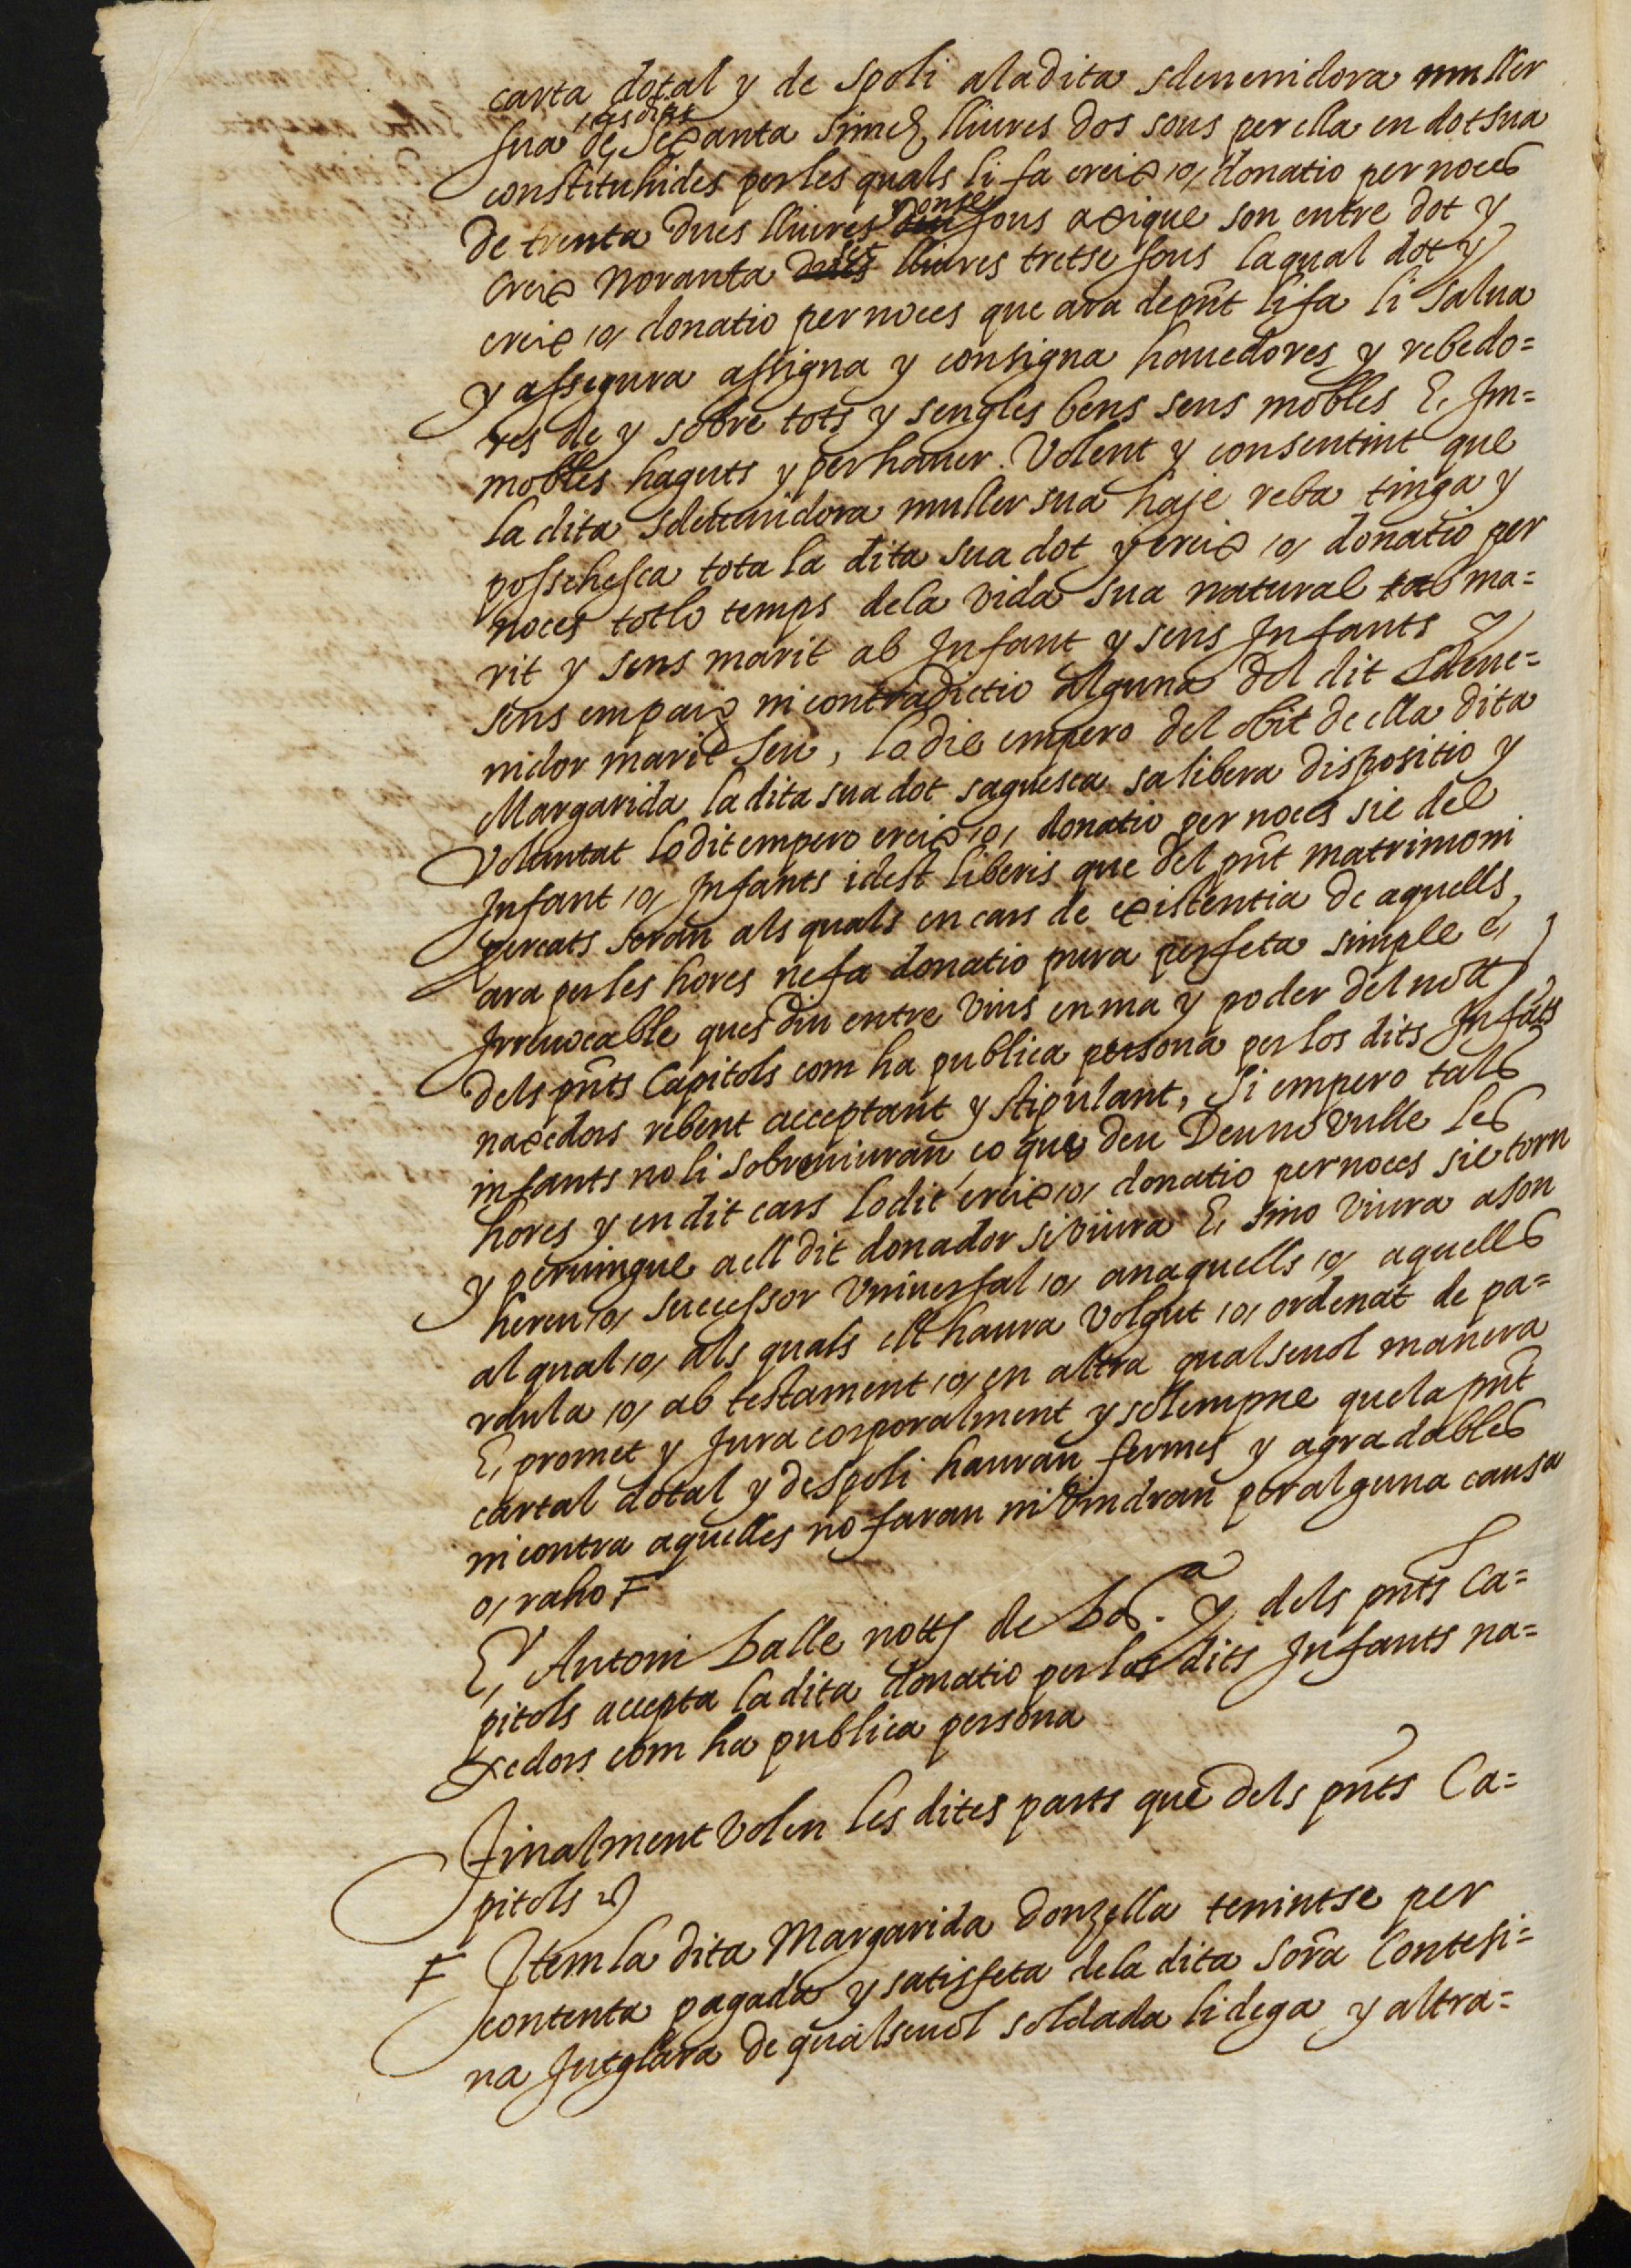 carta dotal y de spoli a la dita sdevenidora muller
sua de les dites sexanta sinch lliures dos sous per ella en dot sua
constituhides per les quals li fa creix /o/ donatio per noces
de trenta dues lliures y onse sous axi que son entre dot y
creix noranta set lliures tretse sous la qual dot y
creix /o/ donatio per noces que ara de pnt li fa li salua
y assegura assigna y consigna hauedores y rebedo=
res de y sobre tots y sengles bens seus mobles E, Im=
mobles haguts y per hauer. Volent y consentint que
la dita sdeuenidora muller sua haje reba tinga y
possehesca tota la dita sua dot y creix /o/ donatio per
noces tot lo temps de la vida sua natural ab ma=
rit y sens marit ab Infant y sens Infants y
sens empaig ni contradictio alguna del dit sdeue=
nidor marit seu, lo die empero del obit de ella dita
Margarida la dita sua dot saguesca sa libera dispositio y
Voluntat lo dit empero creix /o/ donatio per noces sie del
Infant /o/ Infants idest liberis que del pnt matrimoni
percats seran als quals en cars de existentia de aquells
ara per les hores ne fa donatio pura perfeta simple e,
Irreuocable ques diu entre vius en ma y poder del nott
dels pnts Capitols com ha publica persona per los dits Infats
naxedors rebent acceptant y stipulant, Si empero tals
infants no li sobreuiuran ço que deu Deu no vulle les
hores y en dit cars lo dit creix /o/ donatio per noces sie torn
y peruingue a ell dit donador si viura E, sino viura a son
hereu /o/ successor Vniuersal /o/ an aquells /o/ aquells
al qual /o/ als quals ell haura volgut /o/ ordenat de pa=
raula /o/ ab testament /o/ en altra qualseuol manera
E, promet y Jura corporalment y sollempne que la pnt
cartal dotal y despoli hauran fermes y agradables
ni contra aquelles no faran ni vindran per alguna causa
o, raho F
E, Antoni Balle notty de Bar.a y dels pnts Ca=
pitols accepta la dita donatio per los dits Infants na=
xedors com ha publica persona
Finalment volen les dites parts que dels pnts Ca=
pitols
F Item la dita Margarida donzella tenintse per
contenta pagada y satisfeta de la dita Sora Contesi=
na Jutglara de qualseuol soldada li dega y altra=